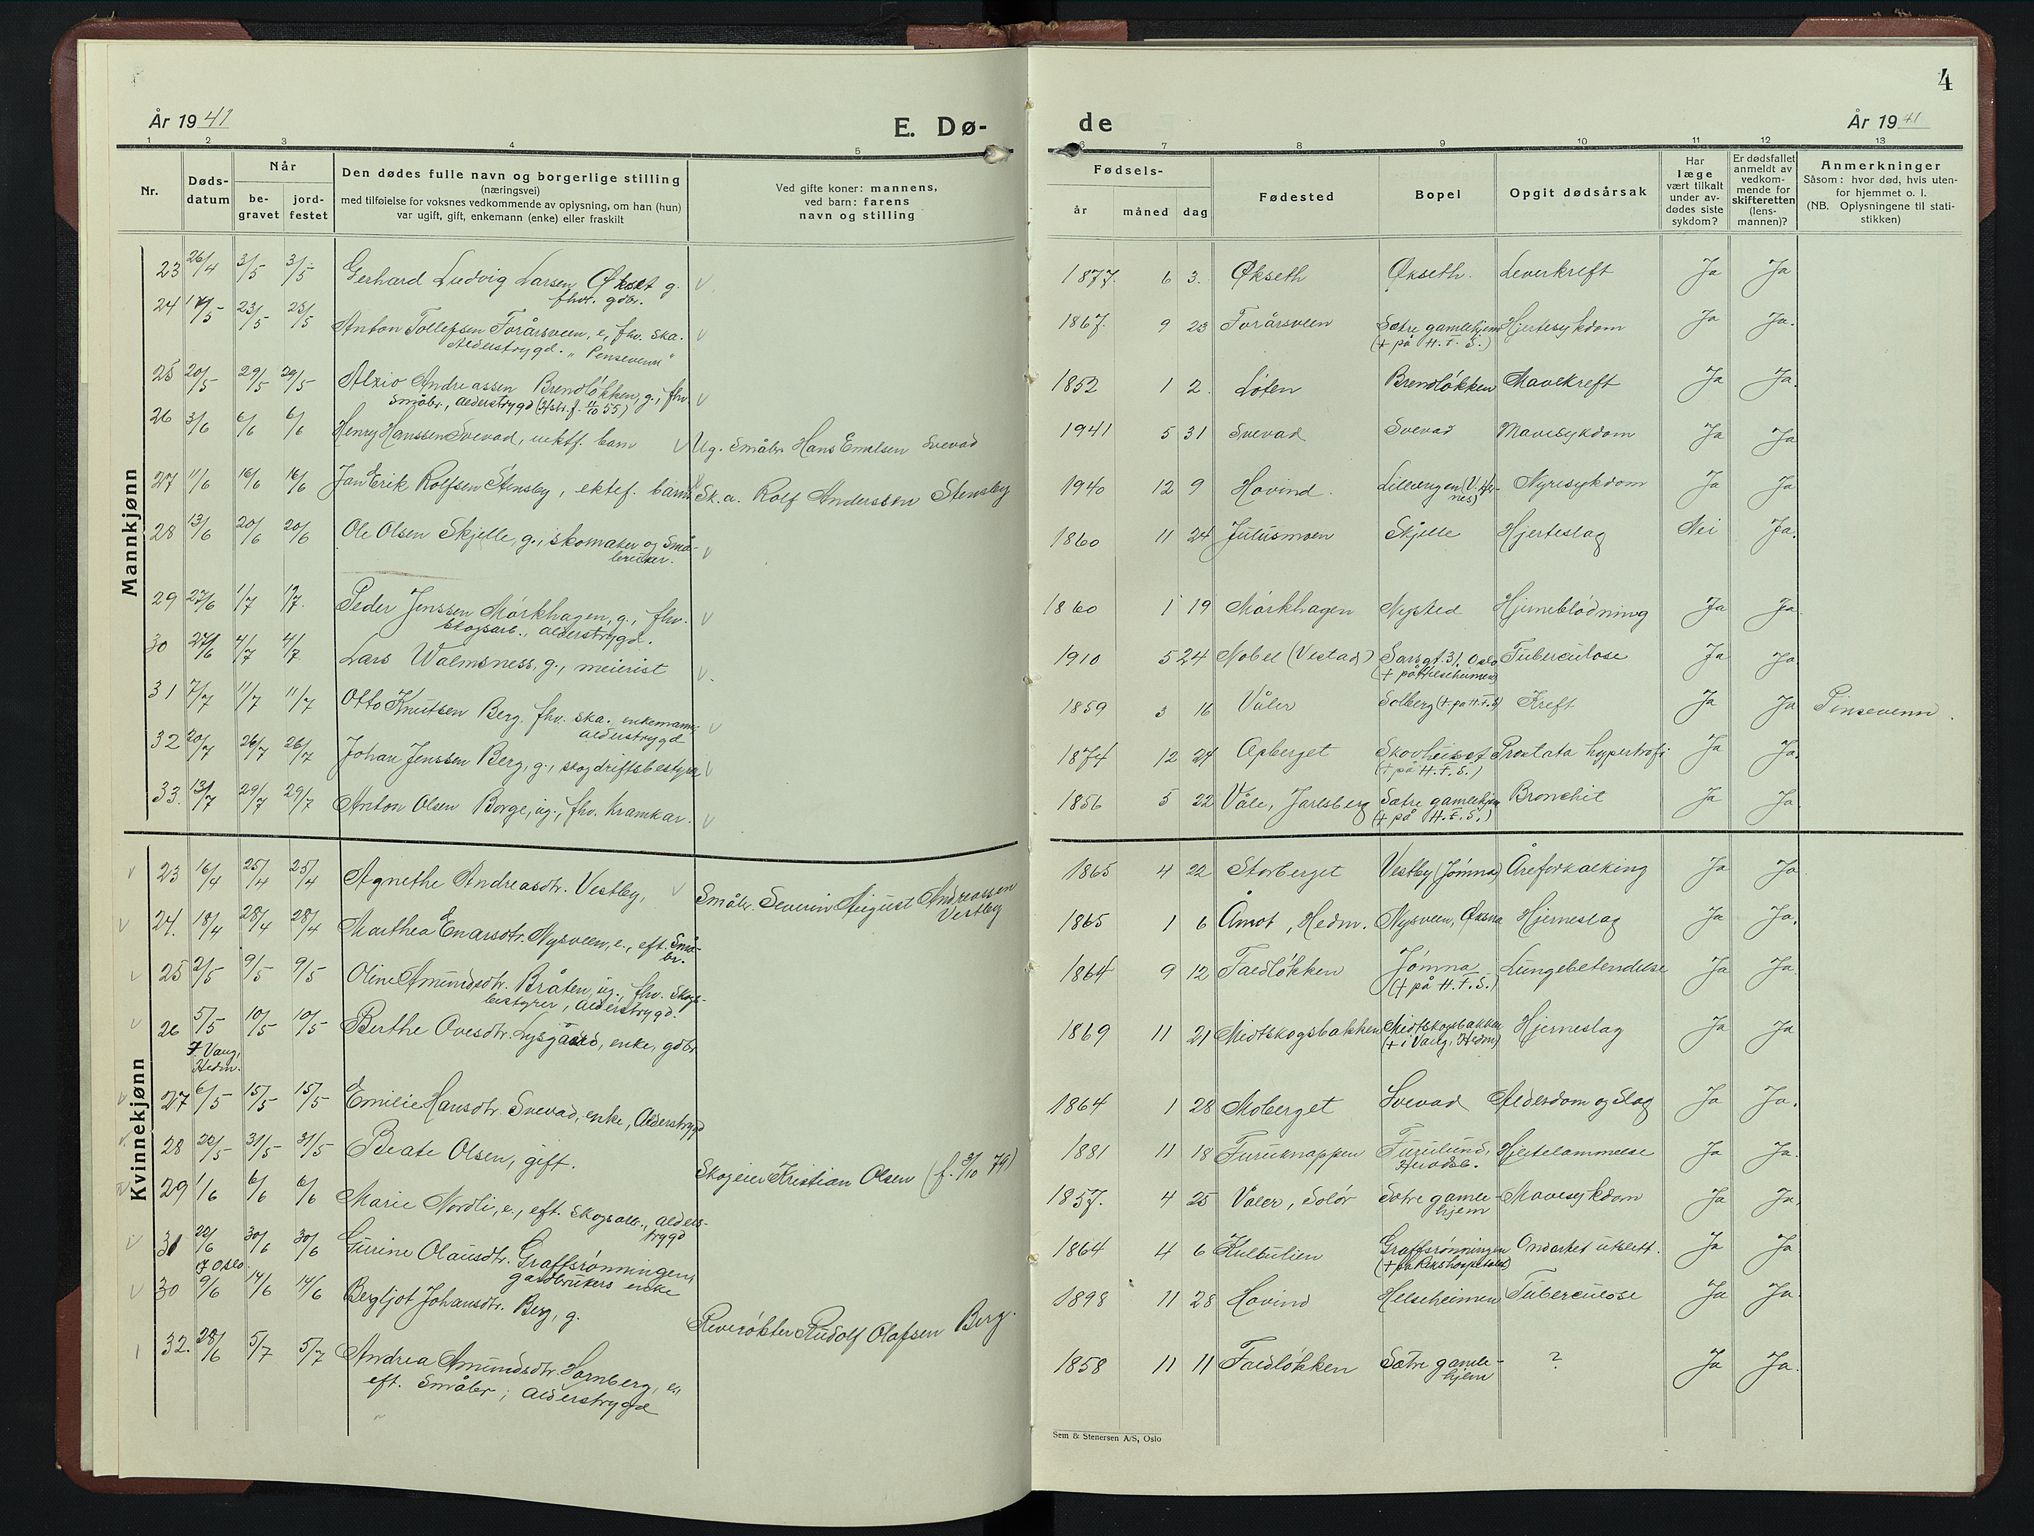 År 1941
E. Dø-
1 2 3 4 5
Nr.
Døds-
datum
Når
be-
gravet
jord-
festet
Den dødes fulle navn og borgerlige stilling
(næringsvei)
med tilføielse for voksnes vedkommende av oplysning, om han (hun)
var ugift, gift, enkemann (enke) eller fraskilt
Ved gifte koner: mannens,
ved barn: farens
navn og stilling
Mannkjønn
23 26/4 3/5 3/5 Gerhard Ludvig Larsen Økset g.
fhv. gdbr.
24 17/5 23/5 23/5 Anton Tollefsen Forårsveen, e, fhv. ska.
Alderstrygd. "Pinsevenn"
25 20/5 29/5 29/5 Andreassen Brendløkken, g., fhv
Småbr., alderstrygd
26 3/6 6/6 6/6 Henry Hanssen Svevad, uektf. barn Ug. Småbr. Hans Emilsen Svevad
27 11/6 16/6 16/6 Jan Erik Rolfsen Stensby, ektef. barn Sk.a. Rolf Anderssen Stensby
28 13/6 20/6 20/6 Ole Olsen Skjelle, g., skomaker og Små-
bruker.
29 27/6 1/7 1/7 Peder Jenssen Mørkhagen, g., fhv.
skogsarb., alderstrygd.
30 27/6 4/7 4/7 Lars Walmsness, g., meierist
31 7/7 11/7 11/7 Otto Knutsen Berg, fhv. ska. enkemann,
alderstrygd
32 20/7 26/7 26/7 Johan Jenssen Berg, g., skogdriftsbestyrer
33. 13/7 29/7 29/7 Anton Olsen Borge, ug., fhv. kramkar.
Kvinnekjønn
23 16/4 25/4 25/4 Agnethe Andreasdtr. Vestby, Småbr. Severin August Andreassen
Vestby
24. 18/4 28/4 28/4 Marthea Enarsdtr. Nysveen, e., eft. Små-
br.
25 2/5 9/5 9/5 Oline Amundsdtr. Bråten, ug., fhv. Skogs-
bestyrer, Alderstrygd.
26 5/5 10/5 10/5 Berthe Ovesdtr. Lysgaard, enke, gdbr
† Vang,
Hedm.
27 6/5 15/5 15/5 Emilie Hansdtr. Svevad, enke, Alderstrygd
28 20/5 31/5 31/5 Beate Olsen, gift. Skogeier Kristian Olsen (f. 3/10 79)
29 1/6 6/6 6/6 Marie Nordli, e., eft. skogsarb., alders-
trygd
31 20/6 30/6 30/6 Gurine Olausdtr. Graffsrønningen,
† Oslo gardbrukers enke
30 9/6 14/6 14/6 Bergljot Johansdtr. Berg, g. Reverøkter Rudolf Olafsen Berg.
32. 28/6 5/7 5/7 Andrea Amundsdtr. Hornberg, e,
eft. Småbr.; alderstrygd
4
de
År 1941
6 7 8 9 10 11 12 13
Fødsels-
år måned dag
Fødested
Bopel
Opgit dødsårsak
Har
læge
vært tilkalt
under av-
dødes siste
sykdom?
Er dødsfallet
anmeldt av
vedkom-
mende for
skifteretten
(lens-
mannen)?
Anmerkninger
Såsom: hvor død, hvis uten-
for hjemmet o. l.
(NB. Oplysningene til stati-
stikken)
1877. 6 3. Økseth Økseth. Leverkreft Ja Ja
1867. 9 23 Forårsveen Sætre gamlehjem Hjertesykdom Ja Ja.
(+ på H.F.S.)
1852 1 2. Løten Brendløkken Mavekreft Ja Ja.
1941 5 31 Svevad Svevad Mavesykdom Ja Ja
1940 12 9 Hovind. Nyresykdom Ja Ja.
1860 11 24 Julusmoen Skjelle Hjerteslag Nei Ja.
1860 1 19 Mørkhagen Nysted Hjerneblødning Ja Ja.
1910 5 24 Nobel (Vestad) Sarsgt. 31, Oslo Tuberculose Ja Ja
(+ på Helseheimen)
1859 3 16 Våler Solberg (+ på H.F.S) Kreft Ja Ja Pinsevenn.
1874 12 24 Opberget Skovhuset Prostata hypertrofi Ja Ja.
(+ på H.F.S.)
1856 5 22 Våle, Jarlsberg Sætre gamlehjem Bronchit Ja Ja
(+ på H.F.S.)
1865 4 22 Storberget Vestby (Jømna) Åreforkalking Ja Ja
1865 1 6 Åmot, Hedm. Nysveen, Øksna Hjerneslag Ja Ja.
1864 9 12 Faldløkken Jømna Lungebetendelse Ja Ja
(+ på H.F.S.)
1869 11 21 Midtskogsbakken Midtskogsbakken Hjerneslag Ja Ja
(+ i Vang, Hedm)
1864 1 28 Moberget Svevad Alderdom og Slag Ja Ja.
1881 11 18 Furuknappen Furulund, Hjertelammelse Ja Ja.
1857. 4 25 Våler, Solør Sætre gamle- Mavesykdom Ja Ja.
hjem
1864 4 6 Kulbulien Graffsrønningen Ondartet utslett. Ja Ja
(+ på Rikshospitalet)
1898 11 28 Hovind Helseheimen Tuberculose Ja Ja.
1858 11 11 Faldløkken Sætre gamle- ? Ja Ja.
hjem
Sem & Stenersen A/S, Oslo